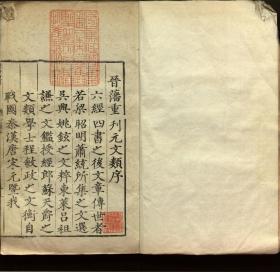 晉藩重刋元文類序
六經四書之後文章傳世者
若梁昭明蕭統所集之文選
吳興姚鉉之文粹東萊呂祖
謙之文鑑授經郎蘇天爵之
文類學士程敏政之文衡自
戰國秦漢唐宋元曁我